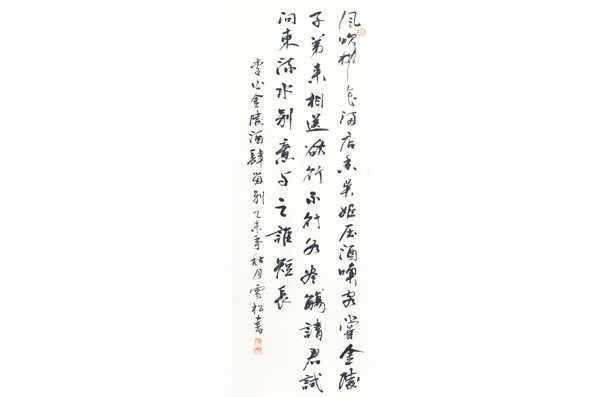 風吹柳花滿店香吴姬压酒喚客嘗金陵
子弟来相送欲行不行各盡觴請君試
问東流水别意与之誰短長
李白金陵酒肆留别乙未年秋月雪松書